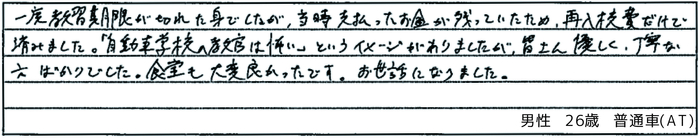 一度教習期限が切れた身でしたが、当時支払ったお金が残っていたため、再入校費だけで
済みました。「自動車学校の教官は怖い」というイメージがありましたが、皆さん優しく、丁寧な
方ばかりでした。食堂も大変良かったです。お世話になりました。
男性 26歳 普通車(AT)